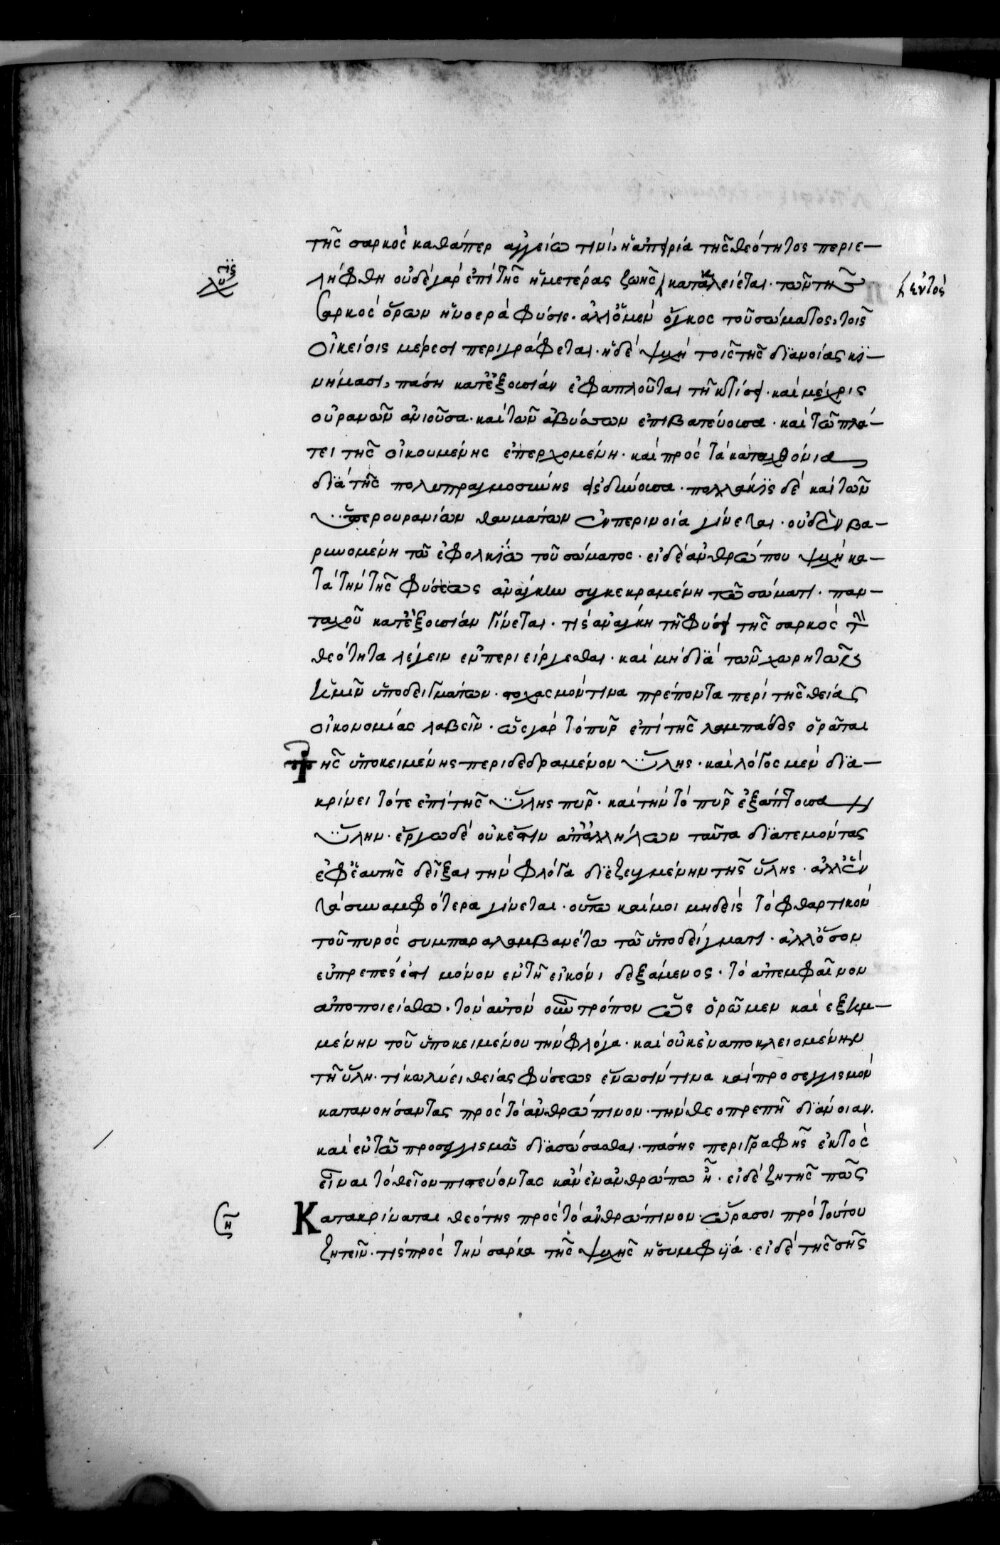 τῆς σαρκὸς καθάπερ ἀγγείω τινί, ἡ ἀπειρία τῆς θεότητος περιε-
λήφθη οὐδὲ γὰρ ἐπὶ τῆς ἡμετέρας ζωῆς κατακλείεται τῶν τῆς
ἐντὸς
σαρκὸς ὅρων ἡ νοερὰ φύσις. ἀλλ' ὁ μὲν ὄγκος τοῦ σώματος, τοῖς
οἰκείοις μέρεσι περιγράφεται. ἡ δὲ ψυχὴ τοῖς τῆς διανοίας κϊ-
νήμασι, πάση κατεξουσίαν ἐφαπλοῦται τῆ κτίσει. καὶ μέχρις
οὐρανῶν ἀνιοῦσα. καὶ τῶν ἀβύσσων ἐπιβατεύουσα. καὶ τῶ πλά-
τει τῆς οἰκουμένης ἐπερχομένη. καὶ πρὸς τὰ καταχθόνια
διὰ τῆς πολυπραγμοσύνης εἰσδύουσα. πολλάκις δὲ καὶ τῶν
ὑπερουρανίων θαυμάτων ἐν περινοία γίνεται. οὐδὲν βα-
ρυνομένη τῶ ἐφολκίω τοῦ σώματος. εἰ δὲ ἀνθρώπου ψυχὴ κα-
τὰ τὴν τῆς φύσεως ἀνάγκην συγκεκραμένη τῶ σώματι. παν-
ταχοῦ κατεξουσίαν γίνεται. τίς ἀνάγκη τῆ φύσει τῆς σαρκὸς τὴν
θεότητα λέγειν ἐμπεριείργεσθαι. καὶ μὴ διὰ τῶν χωρητῶν
ἡμῖν ὑποδειγμάτων. στοχασμόν τινα πρέποντα περὶ τῆς θείας
οἰκονομίας λαβεῖν. ὡς γὰρ τὸ πῦρ ἐπὶ τῆς λαμπάδος ὁρᾶται
Τῆς ὑποκειμένης περιδεδραμένον ὕλης. καὶ λόγος μὲν δια-
κρίνει τό τε ἐπὶ τῆς ὕλης πῦρ. καὶ τὴν τὸ πῦρ ἐξάπτουσαν
ὕλην. ἔργω δὲ οὐκ ἔστιν ἀπ' ἀλλήλων ταῦτα διατεμόντας
ἐφ' ἑαυτῆς δεῖξαι τὴν φλόγα διεζευγμένην τῆς ὕλης. ἀλλ' ἓν
τὰ συναμφότερα γίνεται. οὕτω καί μοι μηδεὶς τὸ φθαρτικὸν
τοῦ πυρὸς συμπαραλαμβανέτω τῶ ὑποδείγματι. ἀλλ' ὅσον
εὐπρεπές ἐστι μόνον ἐν τῆ εἰκόνι δεξάμενος. τὸ ἀπεμφαῖνον
ἀποποιείσθω. τὸν αὐτὸν οὖν τρόπον ὡς ὁρῶμεν καὶ ἐξημ-
μένην τοῦ ὑποκειμένου τὴν φλόγα. καὶ οὐκ ἐναποκλειομένην
τῆ ὕλη. τί κωλύει θείας φύσεως ἕνωσίν τινα καὶ προσεγγισμὸν
κατανοήσαντας πρὸς τὸ ἀνθρώπινον. τὴν θεοπρεπῆ διάνοιαν.
καὶ ἐν τῶ προσεγγισμῶ διασώσασθαι. πάσης περιγραφῆς ἐκτὸς
εἶναι τὸ θεῖον πιστεύοντας κἂν ἐν ἀνθρώπω ἦ. εἰ δὲ ζητῆς πῶς
Κατακρίναται θεότης πρὸς τὸ ἀνθρώπινον. ὥρα σοι πρὸ τούτου
ζητεῖν. τίς πρὸς τὴν σάρκα τῆς ψυχῆς ἡ συμφυΐα. εἰ δὲ τῆς σῆς